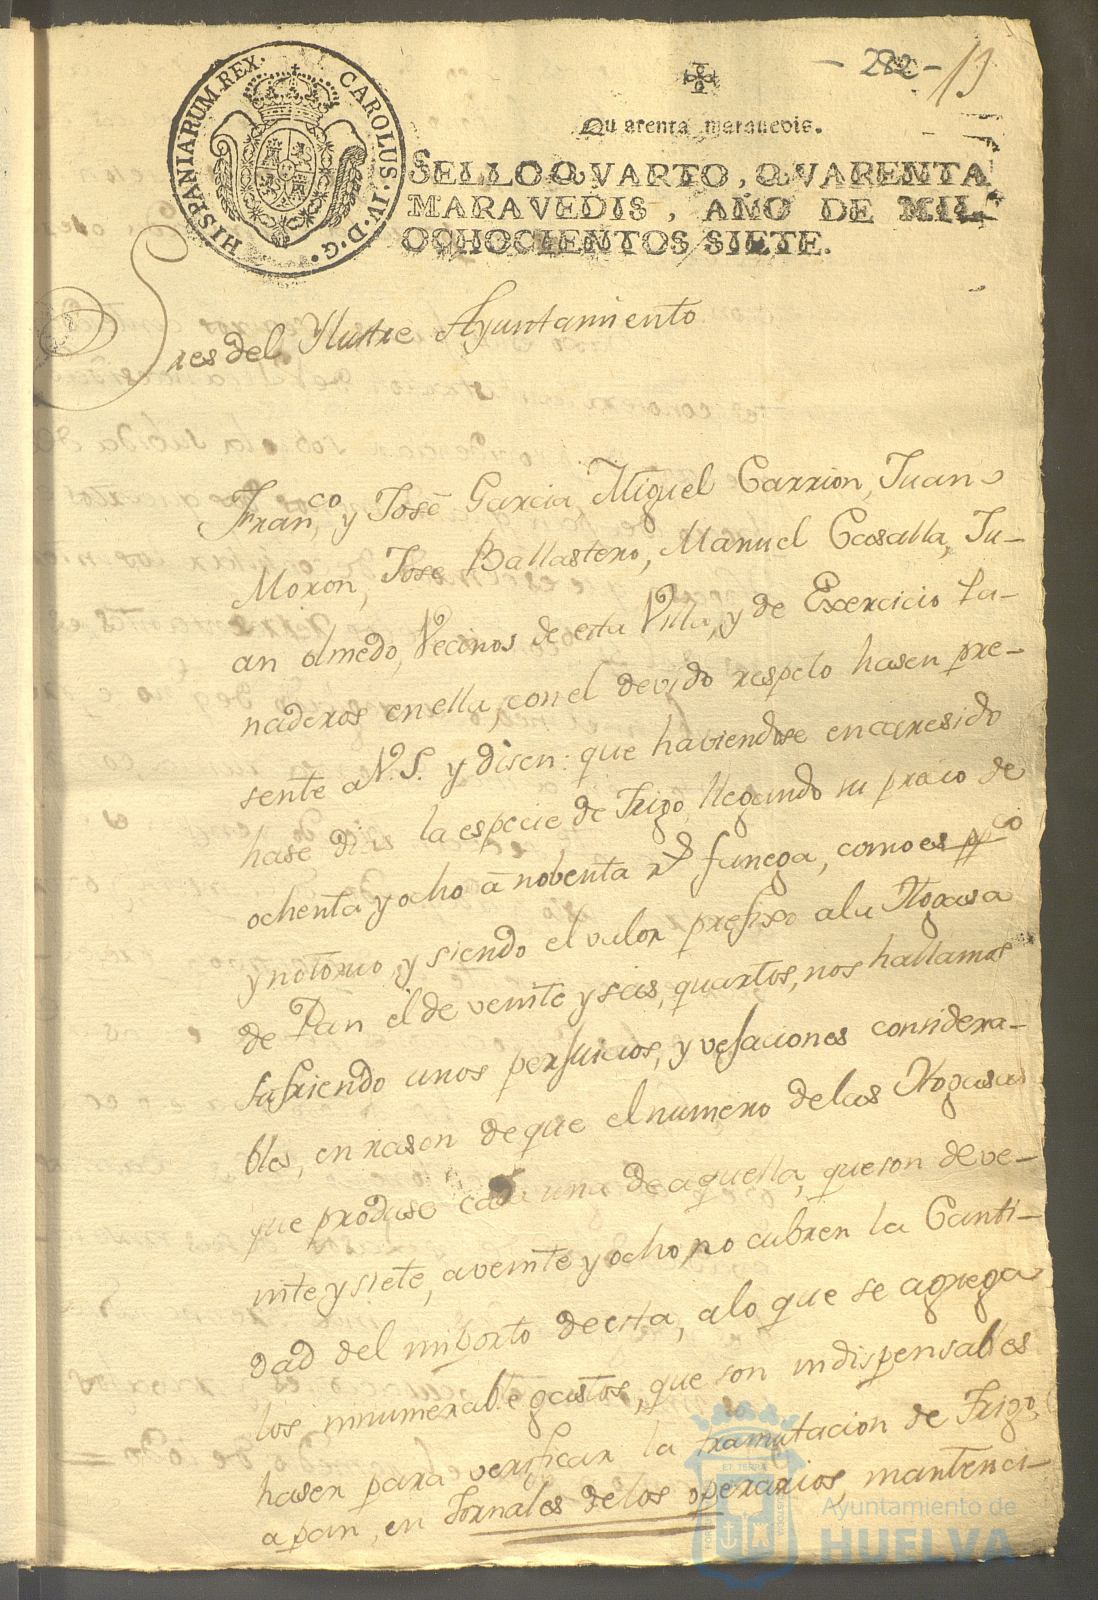 - 282 - 13
HISPANIARUM REX. CAROLUS. IV. D. G.
Quarenta maravedis.
SELLO QVARTO, QVARENTA
MARAVEDIS, AÑO DE MIL
OCHOCIENTOS SIETE.
Sres del Ylustre Ayuntamiento
Franco, y José Garcia, Miguel Carrion, Juan
Moron, Jose Ballastero, Manuel Cosalla, Ju-
an olmedo, Vecinos de esta Villa, y de Exercicio Pa-
naderos en ella, con el devido respeto hasen pre-
sente a V.S. y disen: que haviendose encaresido
hase dias la especie de Trigo, llegando su precio de
ochenta y ocho a nobenta rs. funega, como es ppco
y notorio, y siendo el valor prefixo a la Hogasa
de Pan el de veinte y seis, quartos, nos hallamos
sufriendo unos perjuicios, y vejaciones considera-
bles, en rason de que el numero de las Hogasas
que produse cada una de aquella, que son de ve-
inte y siete, a veinte y ocho, no cubren la Canti-
dad del importo de esta, a lo que se agrega
los innumerable gastos, que son indispensables
hasen para verificar la tramutacion de Trigo,
a pan, en Jornales de los operarios, mantenci-
Ayuntamiento de
HUELVA